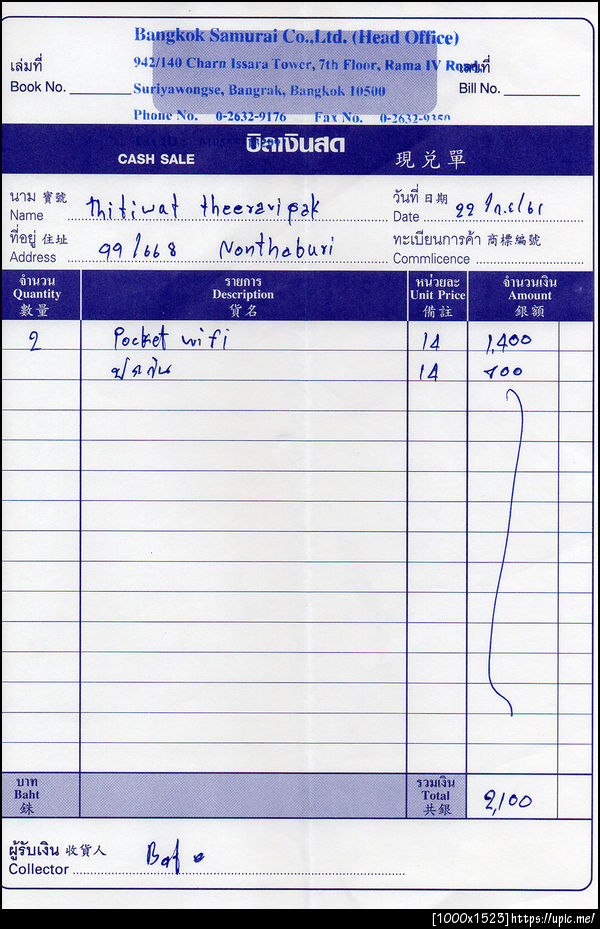 Bangkok Samurai Co.,Ltd. (Head Office)
942/140 Charn Issara Tower, 7th Floor, Rama IV Road,
Suriyawongse, Bangrak, Bangkok 10500
Phone No. 0-2632-9176 Fax No. 0-2632-9350
เล่มที่ เลขที่
Book No. Bill No.
บิลเงินสด
CASH SALE 現兑單
นาม 寶號 วันที่ 日期
Name Thitiwat theeravipak Date 22/ก.ย/61
ที่อยู่ 住址 ทะเบียนการค้า 商標編號
Address 99/668 Nonthaburi Commlicence
จำนวน รายการ หน่วยละ จำนวนเงิน
Quantity Description Unit Price Amount
數量 貨名 備註 銀額
2 Pocket wifi 14 1,400
ประกัน 14 700
บาท รวมเงิน
Baht Total 2,100
銖 共銀
ผู้รับเงิน 收貨人
Collector
[1000x1523]https://upic.me/